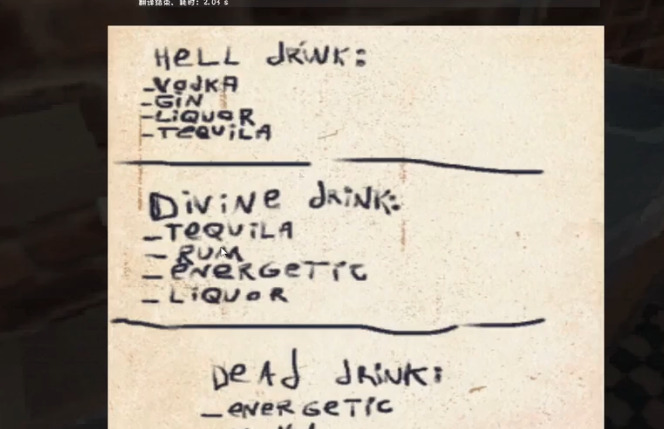 翻译结束, 耗时: 2.04 s
HELL DRINK:
-VODKA
-GIN
-LIQUOR
-TEQUILA
DiViNE DRiNK:
-TEQUiLA
- RUM
- ENERGETIC
- LiQUOR
DEAD DRiNK:
-ENERGETIC